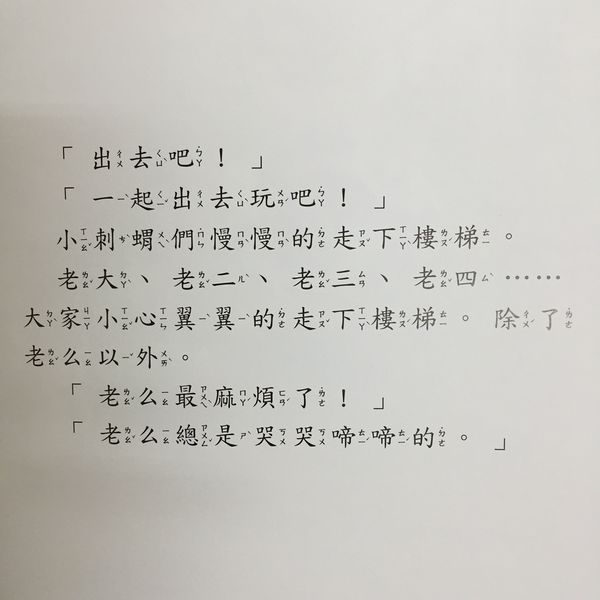 「出去吧！」
「一起出去玩吧！」
小刺蝟們慢慢的走下樓梯。
老大、老二、老三、老四……
大家小心翼翼的走下樓梯。除了
老么以外。
「老么最麻煩了！」
「老么總是哭哭啼啼的。」